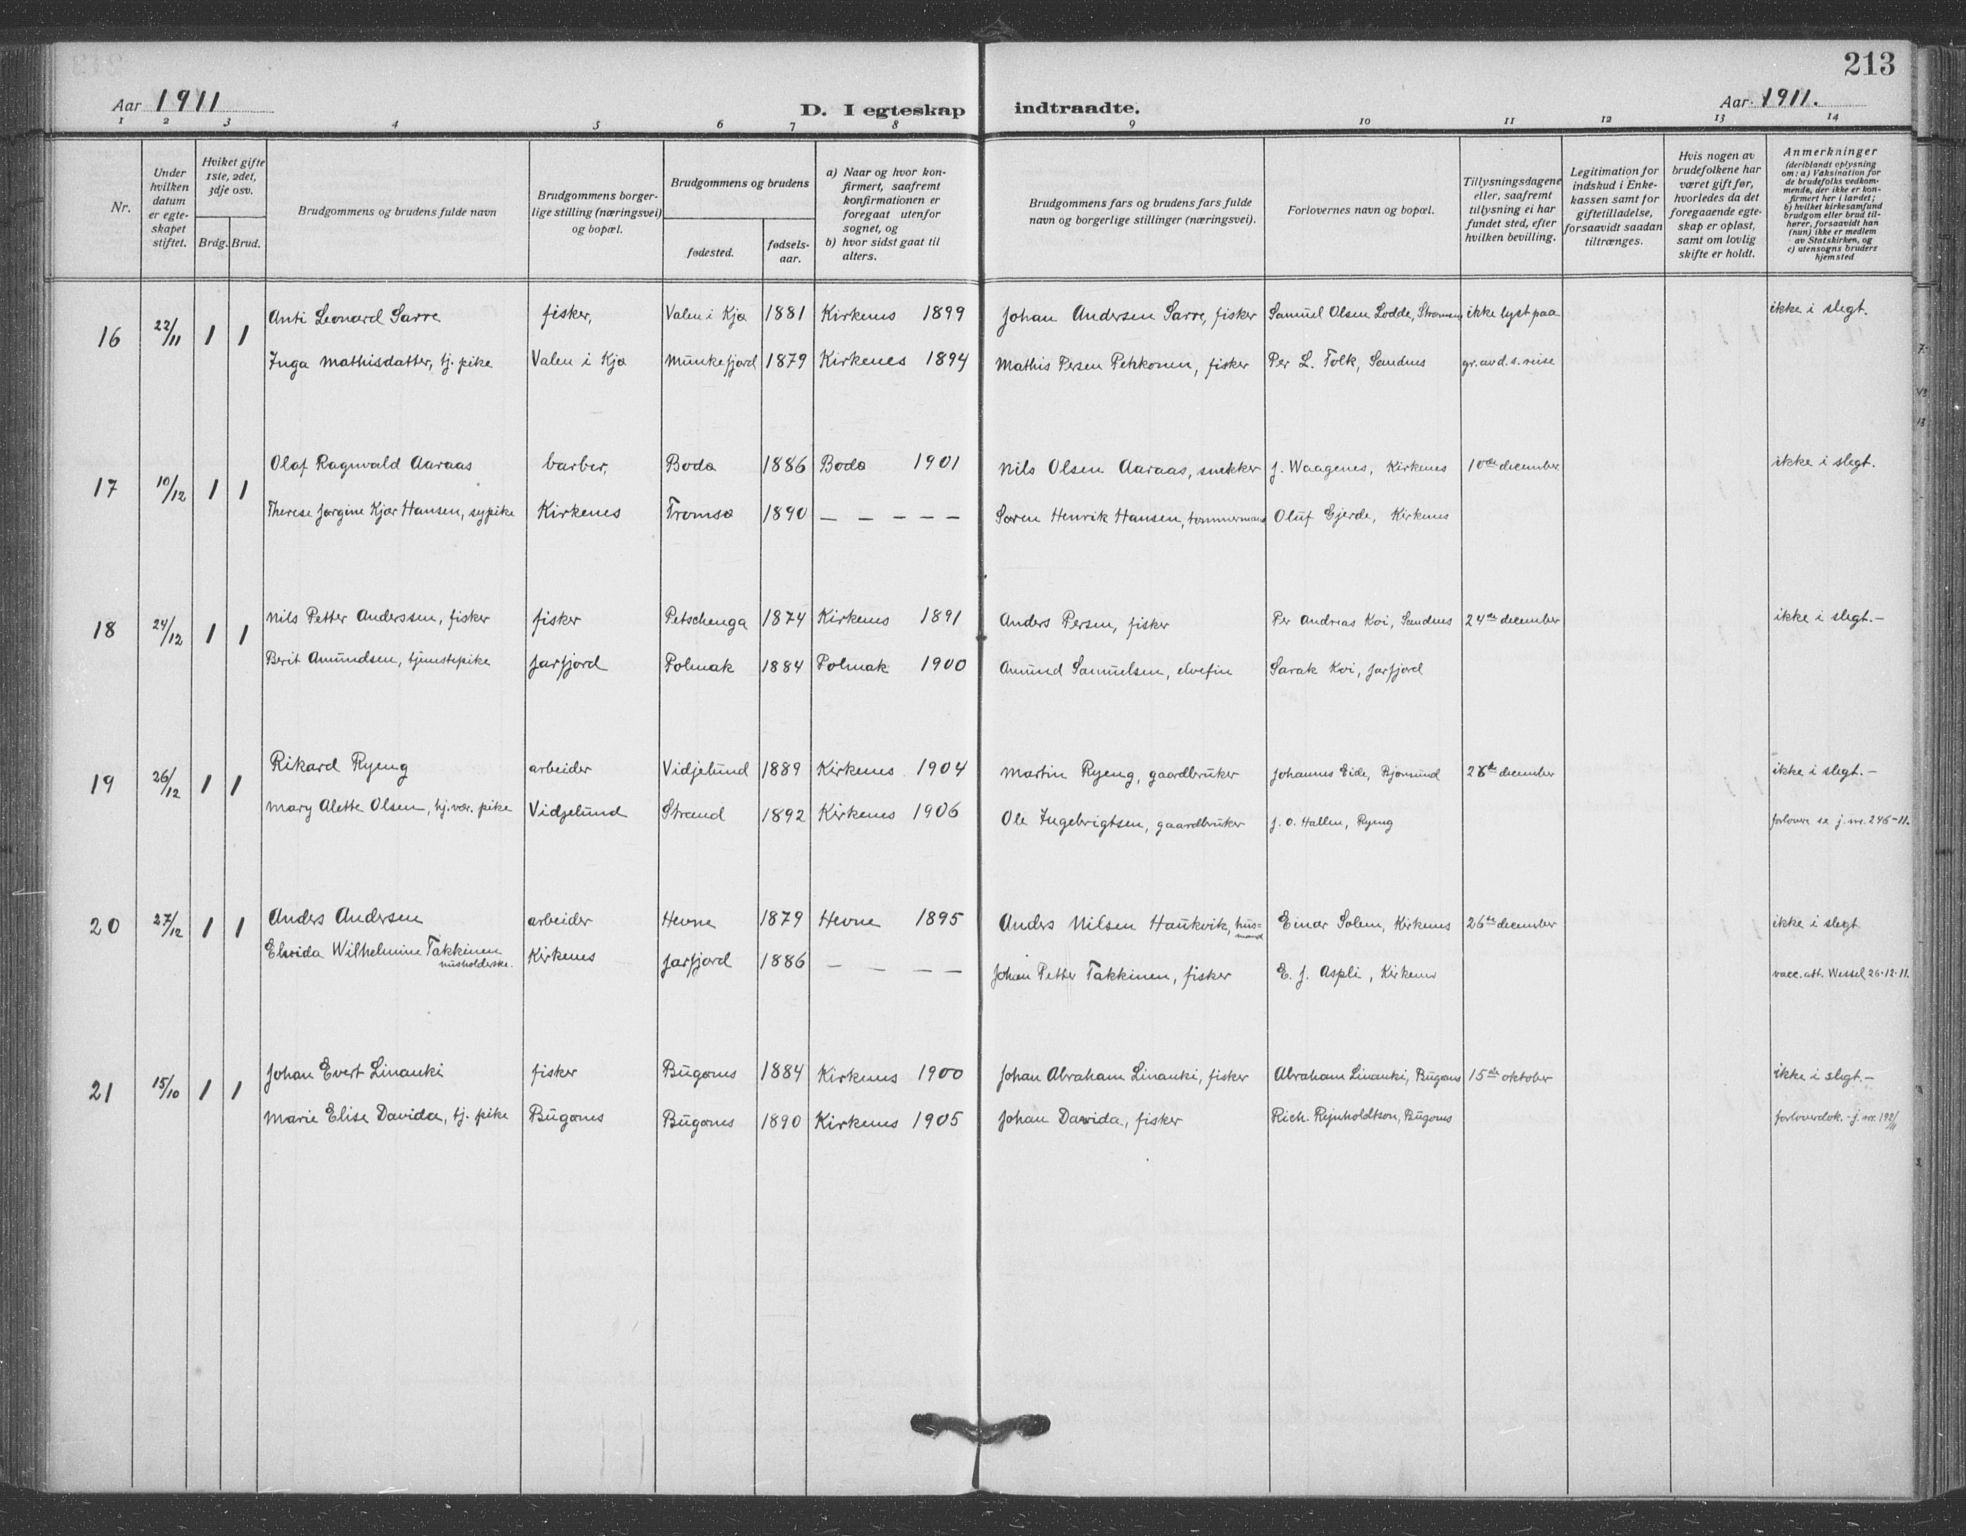 213
Aar 1911
D. I egteskap indtraadte.
Aar 1911.
1 2 3 4 5 6 7 8 9 10 11 12 13 14
Nr.
Under hvilken datum er egteskapet stiftet.
Hvilket gifte 1ste, 2det, 3dje osv.
Brdg. Brud.
Brudgommens og brudens fulde navn
Brudgommens borgerlige stilling (næringsvei) og bopæl.
Brudgommens og brudens
fødested.
fødselsaar.
a) Naar og hvor konfirmert, saafremt konfirmationen er foregaat utenfor sognet, og
b) hvor sidst gaat til alters.
Brudgommens fars og brudens fars fulde navn og borgerlige stillinger (næringsvei).
Forlovernes navn og bopæl.
Tillysningsdagene eller, saafremt tillysning ei har fundet sted, efter hvilken bevilling.
Legitimation for indskud i Enkekassen samt for giftetilladelse, forsaavidt saadan tiltrænges.
Hvis nogen av brudefolkene har været gift før, hvorledes da det foregaaende egteskap er opløst, samt om lovlig skifte er holdt.
Anmerkninger (deriblandt oplysning om: a) Vaksination for de brudefolks vedkommende, der ikke er konfirmert her i landet; b) hvilket kirkesamfund brudgom eller brud tilhører, forsaavidt han (hun) ikke er medlem av Statskirken, og c) utensogns bruders hjemsted
16 22/11 1 1 Anti Leonard Sarre fisker, Valen i Kjø 1881 Kirkenes 1899 Johan Andersen Sarre, fisker Samuel Olsen Lodde, Strømsn ikke lyst paa ikke i slegt.
Inga Mathisdatter, tj. pike Valen i Kjø Munkefjord 1879 Kirkenes 1894 Mathis Persen Pekkonen, fisker Per L. Folk, Sandnes gr. av d. s. reise
17 10/12 1 1 Olaf Ragnvald Aaraas barber, Bodø 1886 Bodø 1901 Nils Olsen Aaraas, snekker J. Waagenes, Kirkenes 10de december ikke i slegt.
Therese Jørgine Kjær Hansen, sypike Kirkenes Tromsø 1890 — — — — — Søren Henrik Hansen, tømmermand Oluf Gjerde, Kirkenes
18 24/12 1 1 Nils Petter Anderssen, fisker fisker Petschenga 1874 Kirkenes 1891 Anders Persen, fisker Per Andreas Koi, Sandnes 24de december ikke i slegt.—
Berit Amundsen, tjenestepike Jarfjord Polmak 1884 Polmak 1900 Amund Samuelsen, elvefin Sarak Koi, Jarfjord
19 26/12 1 1 Rikard Ryeng arbeider Vidjelund 1889 Kirkenes 1904 Martin Ryeng, gaardbruker Johannes Eide, Bjørnsund 26de december ikke i slegt.—
Mary Alette Olsen, hj.vær. pike Vidjelund Strand 1892 Kirkenes 1906 Ole Ingebrigtsen, gaardbruker J. O. Hallen, Ryeng forlovere se j. nr. 246-11.
20 27/12 1 1 Anders Andersen arbeider Hevne 1879 Hevne 1895 Anders Nilsen Haukvik, husmand Einar Solem, Kirkenes 26de december ikke i slegt
Elvida Wilhelmine Takkinen husholderske. Kirkenes Jarfjord 1886 — — — — Johan Petter Takkinen, fisker E. J. Aspli, Kirkenes vacc. att. Wessel 26-12-11.
21 15/10 1 1 Johan Evert Linanki fisker Bugønes 1884 Kirkenes 1900 Johan Abraham Linanki, fisker Abraham Linanki, Bugønes 15de oktober ikke i slegt.—
Marie Elise Davida, tj. pike Bugønes Bugønes 1890 Kirkenes 1905 Johan Davida, fisker Rich. Reinholdtsen, Bugønes forloverdok.- j. nr. 192/11